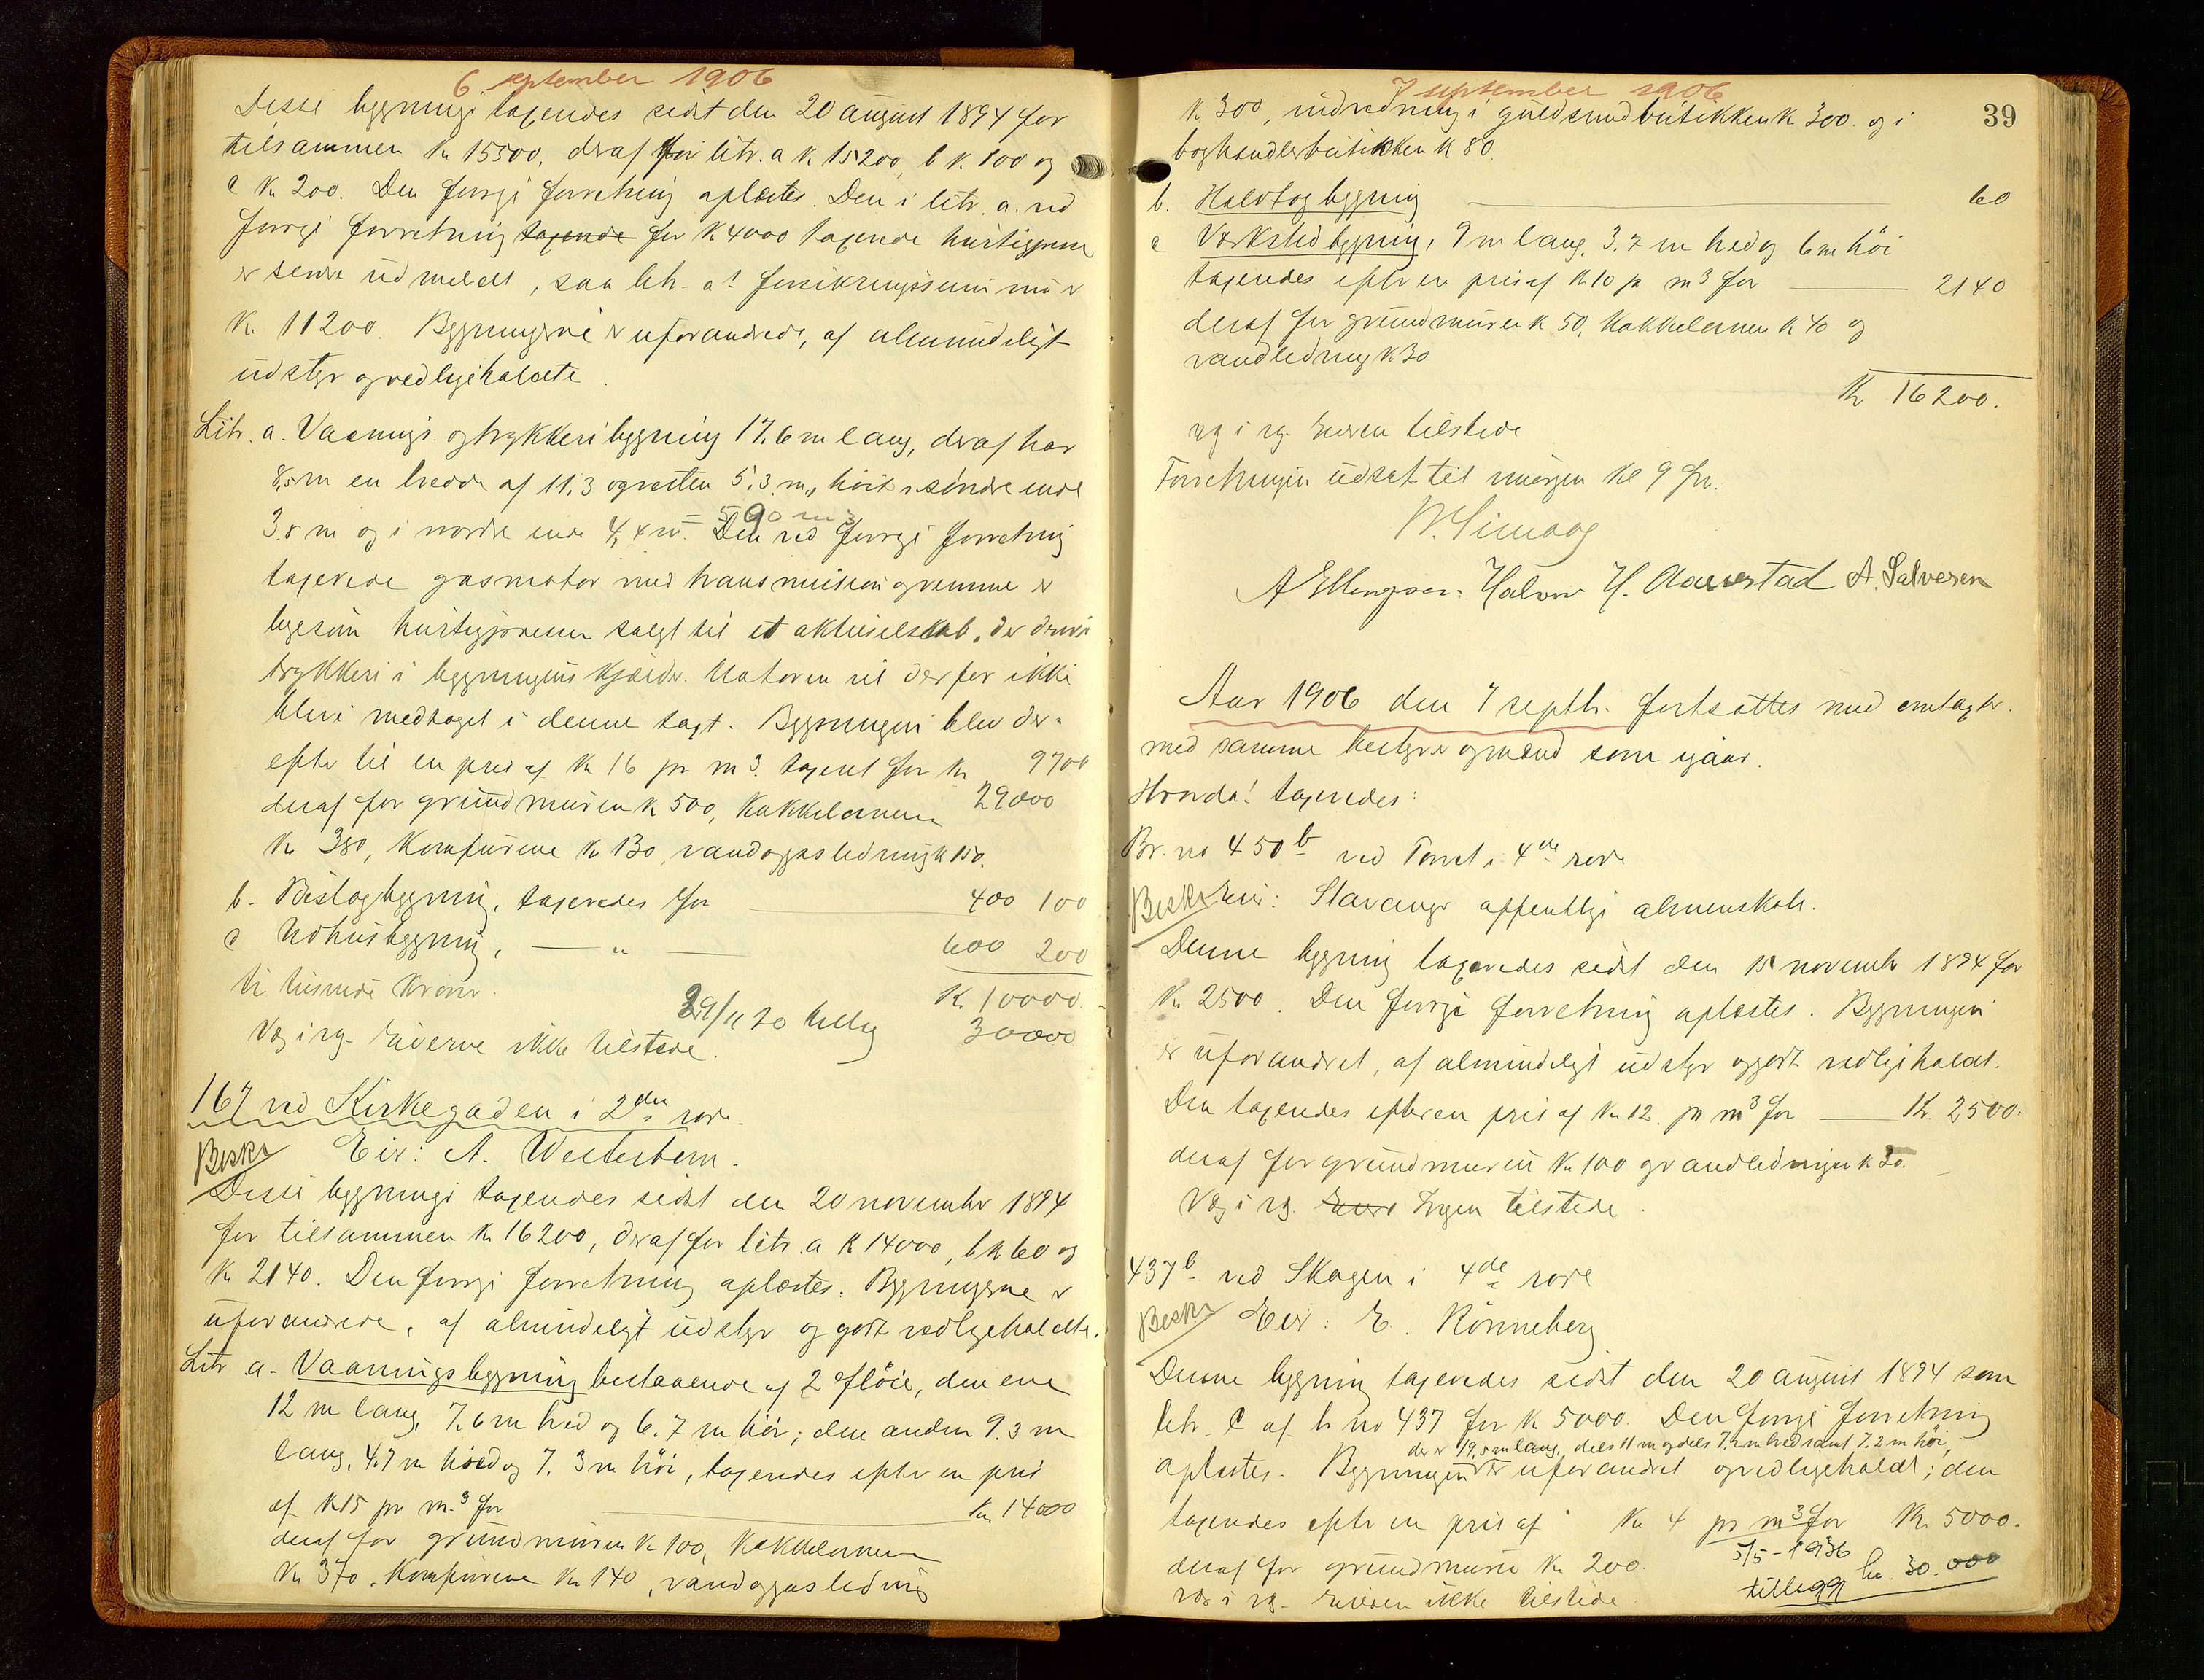 6 september 1906
Disse bygninge taxeredes sidst den 20 august 1894 for
tilsammen Kr 15500, deraf for litr. a k 15200, b k. 100 og
c Kr 200. Den forrige forretning oplæstes. Den i litr. a. ved
forrige forretning taxerede for K 4000 taxerede hurtigpresse
er senere udmeldt, saa litr. a's forsikringssum nu er
Kr. 11200. Bygningerne er uforandrede, af almindeligt
udstyr og vedligeholdte.
Litr. a. Vaanings og trykkeribygning 17.6 m lang, deraf har
8,5 m en bredde af 11.3 og resten 5.3 m, høit i søndre ende
3.8 m og i nordre ende 4,4 m. = 590 m3 Den ved forrige forretning
taxerede gasmotor med transmission og remme er
ligesom hurtigpressen solgt til et aktieselskab, der driver
trykkeri i bygningens kjælder. Motoren vil derfor ikke
blive medtaget i denne taxt. Bygningen blev der-
efter til en pris af Kr 16 pr m3. taxeret for Kr 9700
deraf for grundmuren k 500, Kakkelovnene 29000
Kr 380, Komfurene Kr 130, vand og gasledning k 150.
b. Bislagbygning, taxeredes for 400 100
c Udhusbygning, — " — 600 200
ti tusinde Kroner. Kr. 10000.
29/11 20 tillæg 30000
Væg i væg. Eierne ikke tilstede.
167 ved Kirkegaden i 2den rode.
Beskr Eier: A. Westerbom.
Disse bygninge taxeredes sidst den 20 november 1894
for tilsammen Kr 16200, deraf for litr. a K 14000, b k 60 og
Kr 2140. Den forrige forretning oplæstes. Bygningerne er
uforandrede, af almindeligt udstyr og godt vedligeholdte.
Litr a. Vaaningsbygning bestaaende af 2 fløie, den ene
12 m lang, 7.6 m bred og 6.7 m høi; den anden 9.3 m
lang, 4.7 m bred og 7.3 m høi, taxeredes efter en pris
af K 15 pr m.3 for Kr 14000
deraf for grundmuren K 100, Kakkelovnene
Kr 370, Komfurene Kr 140, vand og gasledning
7 september 1906
39
K 300, indredning i guldsmedbutikken k 300. og i
boghandlerbutikken k 80.
b. Halvtagbygning 60
c Værkstedbygning, 9 m lang, 3.7 m bred og 6 m høi
taxeredes efter en pris af K 10 pr m3 for 2140
deraf for grundmuren K 50, Kakkelovnen K 40 og
vandledning K 30
Kr 16200.
Væg i væg. Eieren tilstede
Forretningen udsat til morgen kl 9 fm.
A Ellingsen. Halvor H. Aarrestad A. Salvesen
Aar 1906 den 7 septbr. fortsattes med omtaxter.
med samme bestyrer og mænd som igaar.
Hvorda! taxeredes:
Br. no 450 b ved Torvet i 4de rode
Beskr Eier: Stavanger offentlige almenskole.
Denne bygning taxeredes sidst den 15 novembr 1894 for
Kr 2500. Den forrige forretning oplæstes. Bygningen
er uforandret, af almindeligt udstyr og godt vedligeholdt.
Den taxeredes efter en pris af Kr 12. pr m3 for Kr. 2500.
deraf for grundmuren Kr 100 og vandledningen k 30.
Væg i væg. Eiere Ingen tilstede.
437 b ved Skagen i 4de rode
Beskr Eier: E. Rönneberg
Denne bygning taxeredes sidst den 20 august 1894 som
litr. C af br no 437 for K 5000. Den forrige forretning
der er 19,5 m lang, dels 11 m og dels 7.2 m bred samt 7.2 m høi,
oplæstes. Bygningen er uforandret og vedligeholdt; den
taxeredes efter en pris af Kr 4 pr m3 for Kr. 5000.
deraf for grundmuren Kr 200. 5/5-1936
tillegg kr. 30.000
Væg i væg. Eieren ikke tilstede.